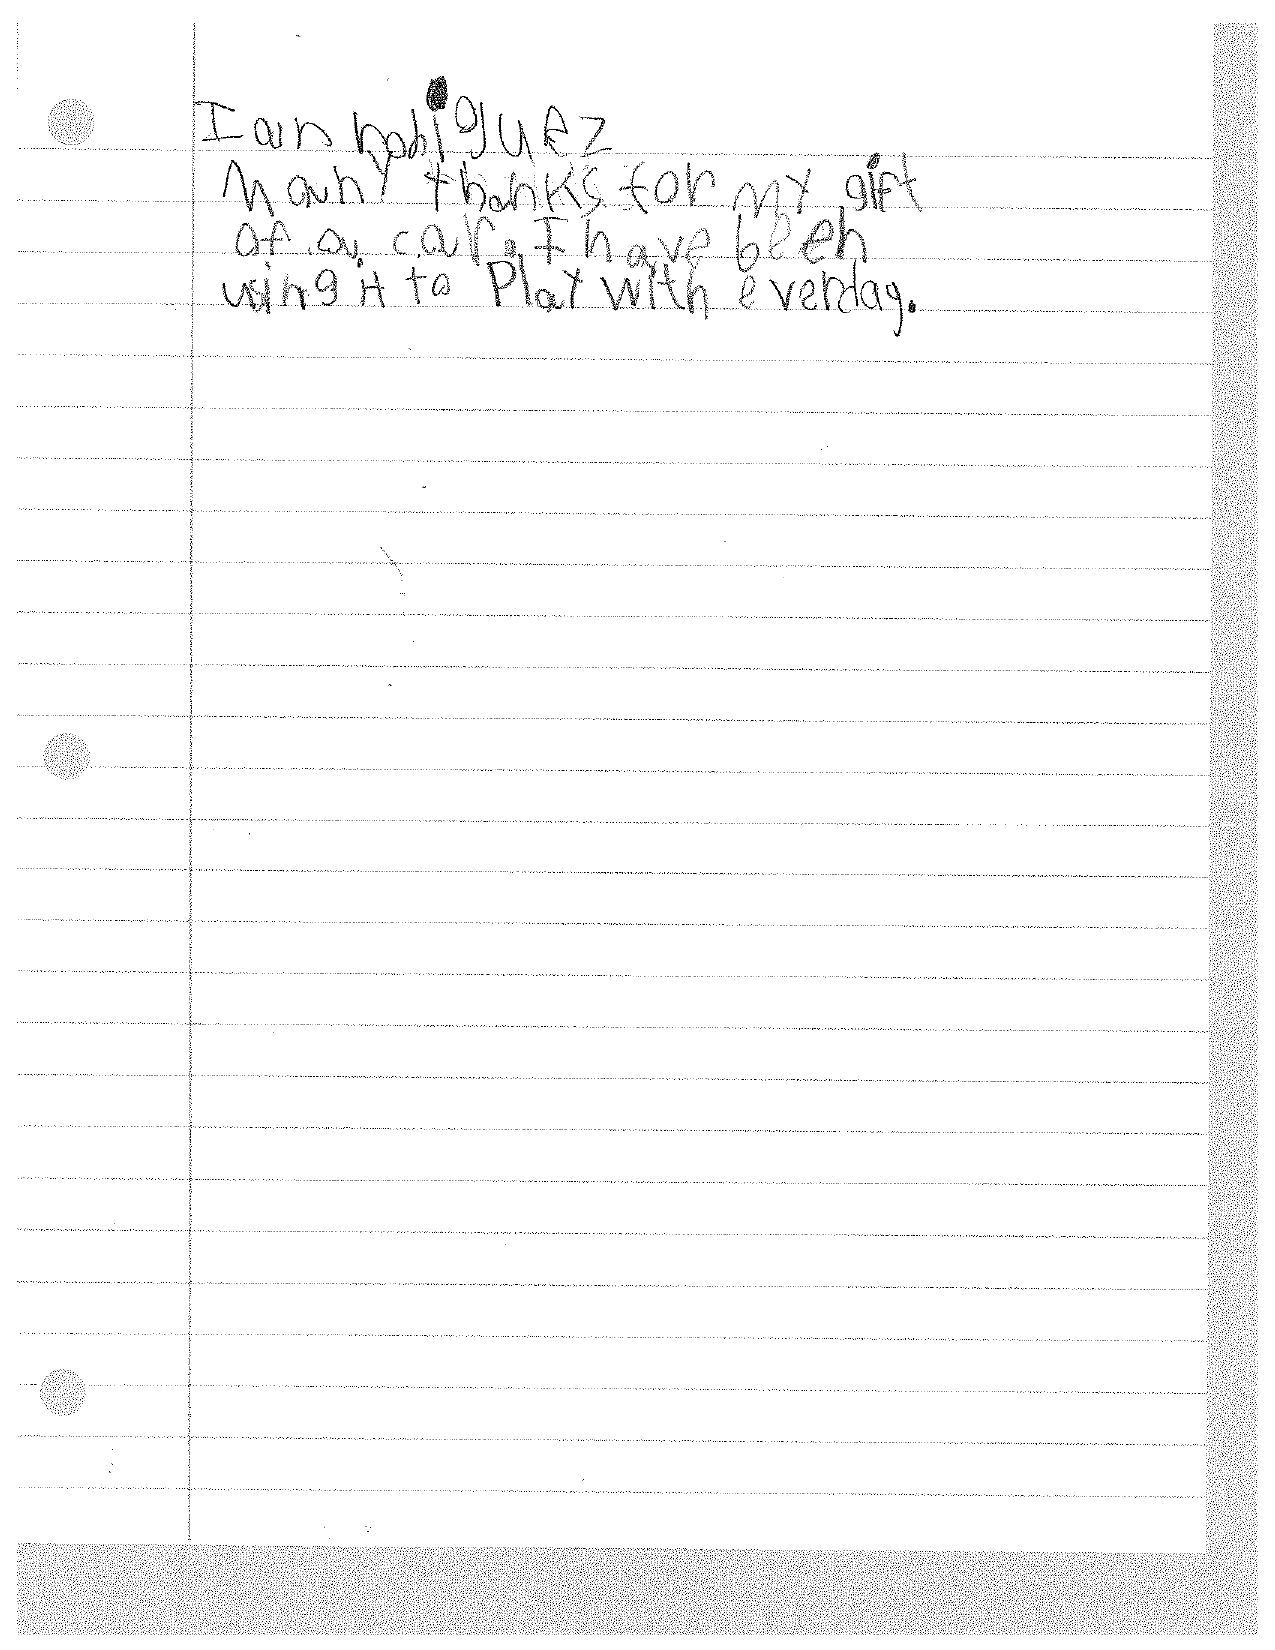 Ian rodiguez
Many thanks for my gift
of a car. I have been
using it to Play with everday.